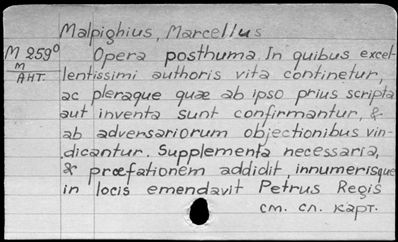 Malpighius, Marcellus
M 259⁰
m
АНТ.
Opera posthuma. In quibus excel-
lentissimi authoris vita continetur,
ac pleraque quæ ab ipso prius scripta
aut inventa sunt confirmantur, &
ab adversariorum objectionibus vin-
dicantur. Supplementa necessaria,
& præfationem addidit, innumerisque
in locis emendavit Petrus Regis
см. сл. карт.